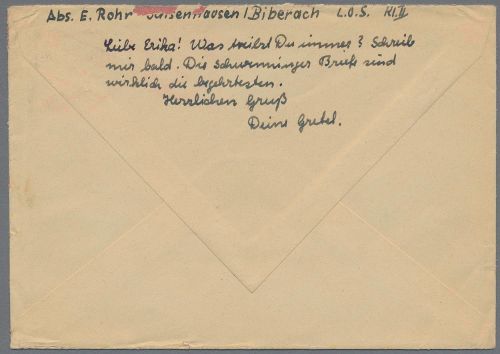 Abs. E. Rohr Sulzenhausen / Biberach L.O.S. Kl. II
Liebe Erika! Was treibst Du immer? Schreib
mir bald. Die Schwenninger Briefe sind
wirklich die begehrtesten.
Herzlichen Gruß
Deine Gretel.